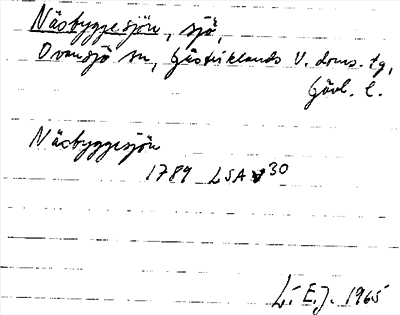 Näsbyggesjön, sjö,
Ovansjö sn, Gästriklands V. doms. tg,
Gävl. l.
Näsbyggesjön
1789 LSA v 30
L. E. J. 1965